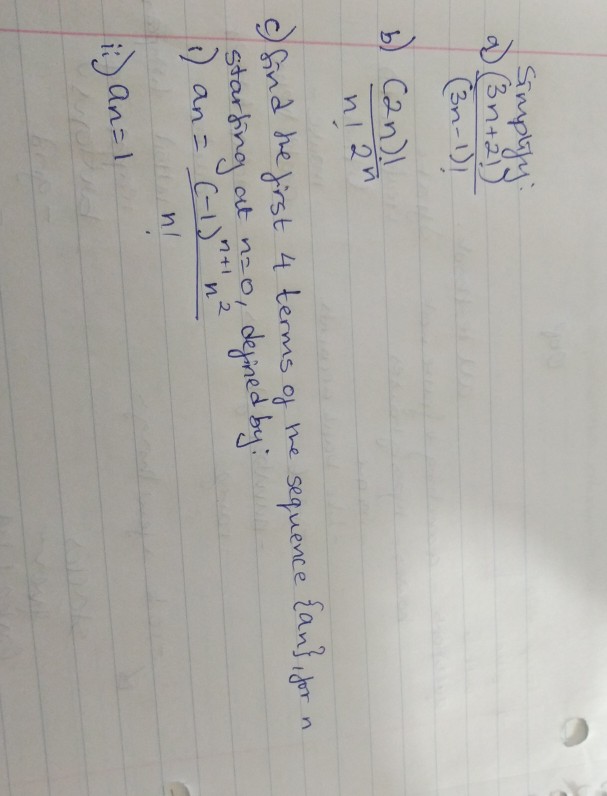 Simplify:
a) (3n+2!)
(3n-1)!
b) (2n)!
n! 2n
c) find the first 4 terms of the sequence {an}, for n
starting at n=0, defined by:
i) an = (-1)^n+1 n^2
n!
ii) an = 1